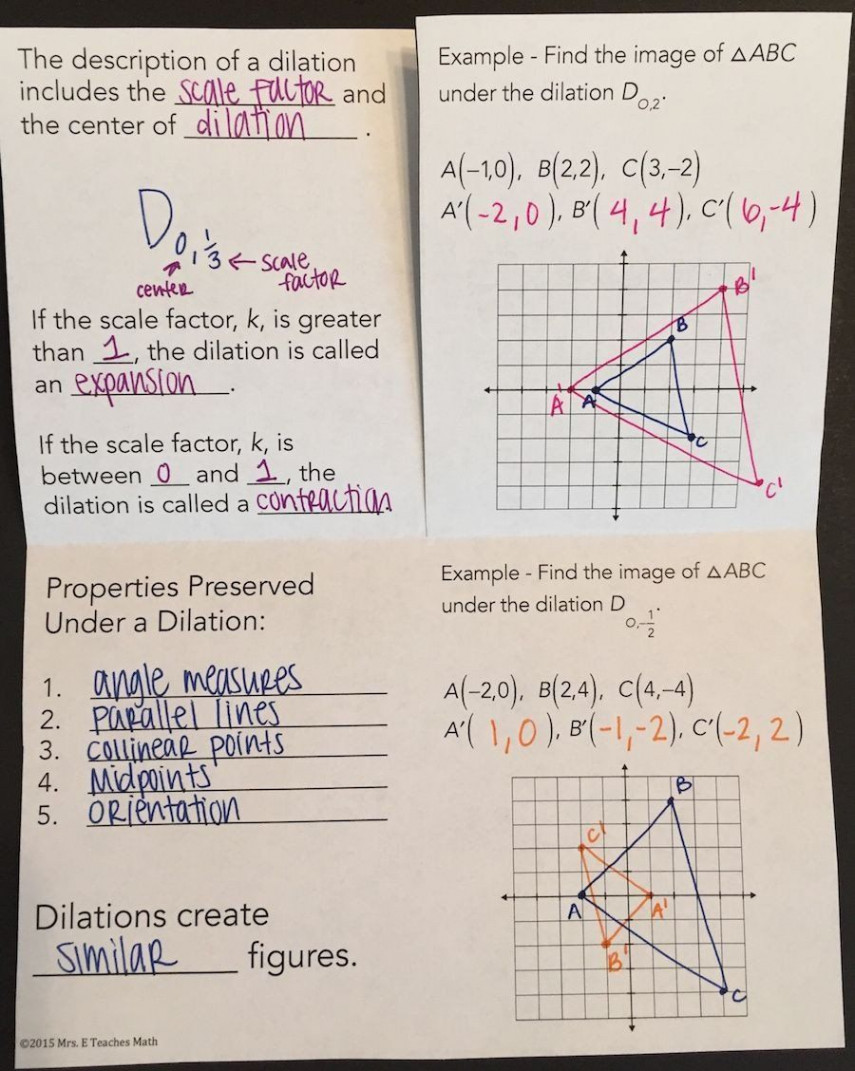 The description of a dilation
includes the scale factor and
the center of dilation.
D O, 1/3 ← scale
factor
center
If the scale factor, k, is greater
than 1, the dilation is called
an expansion.
If the scale factor, k, is
between 0 and 1, the
dilation is called a contraction
Example - Find the image of △ABC
under the dilation D O,2.
A(−1,0), B(2,2), C(3,−2)
A′(-2,0), B′(4,4), C′(6,-4)
B'
B
A' A
C
C'
Properties Preserved
Under a Dilation:
1. angle measures
2. parallel lines
3. collinear points
4. Midpoints
5. orientation
Dilations create
similar figures.
©2015 Mrs. E Teaches Math
Example - Find the image of △ABC
under the dilation D O,−1/2.
A(−2,0), B(2,4), C(4,−4)
A′(1,0), B′(-1,-2), C′(-2,2)
B
C'
A A'
B'
C